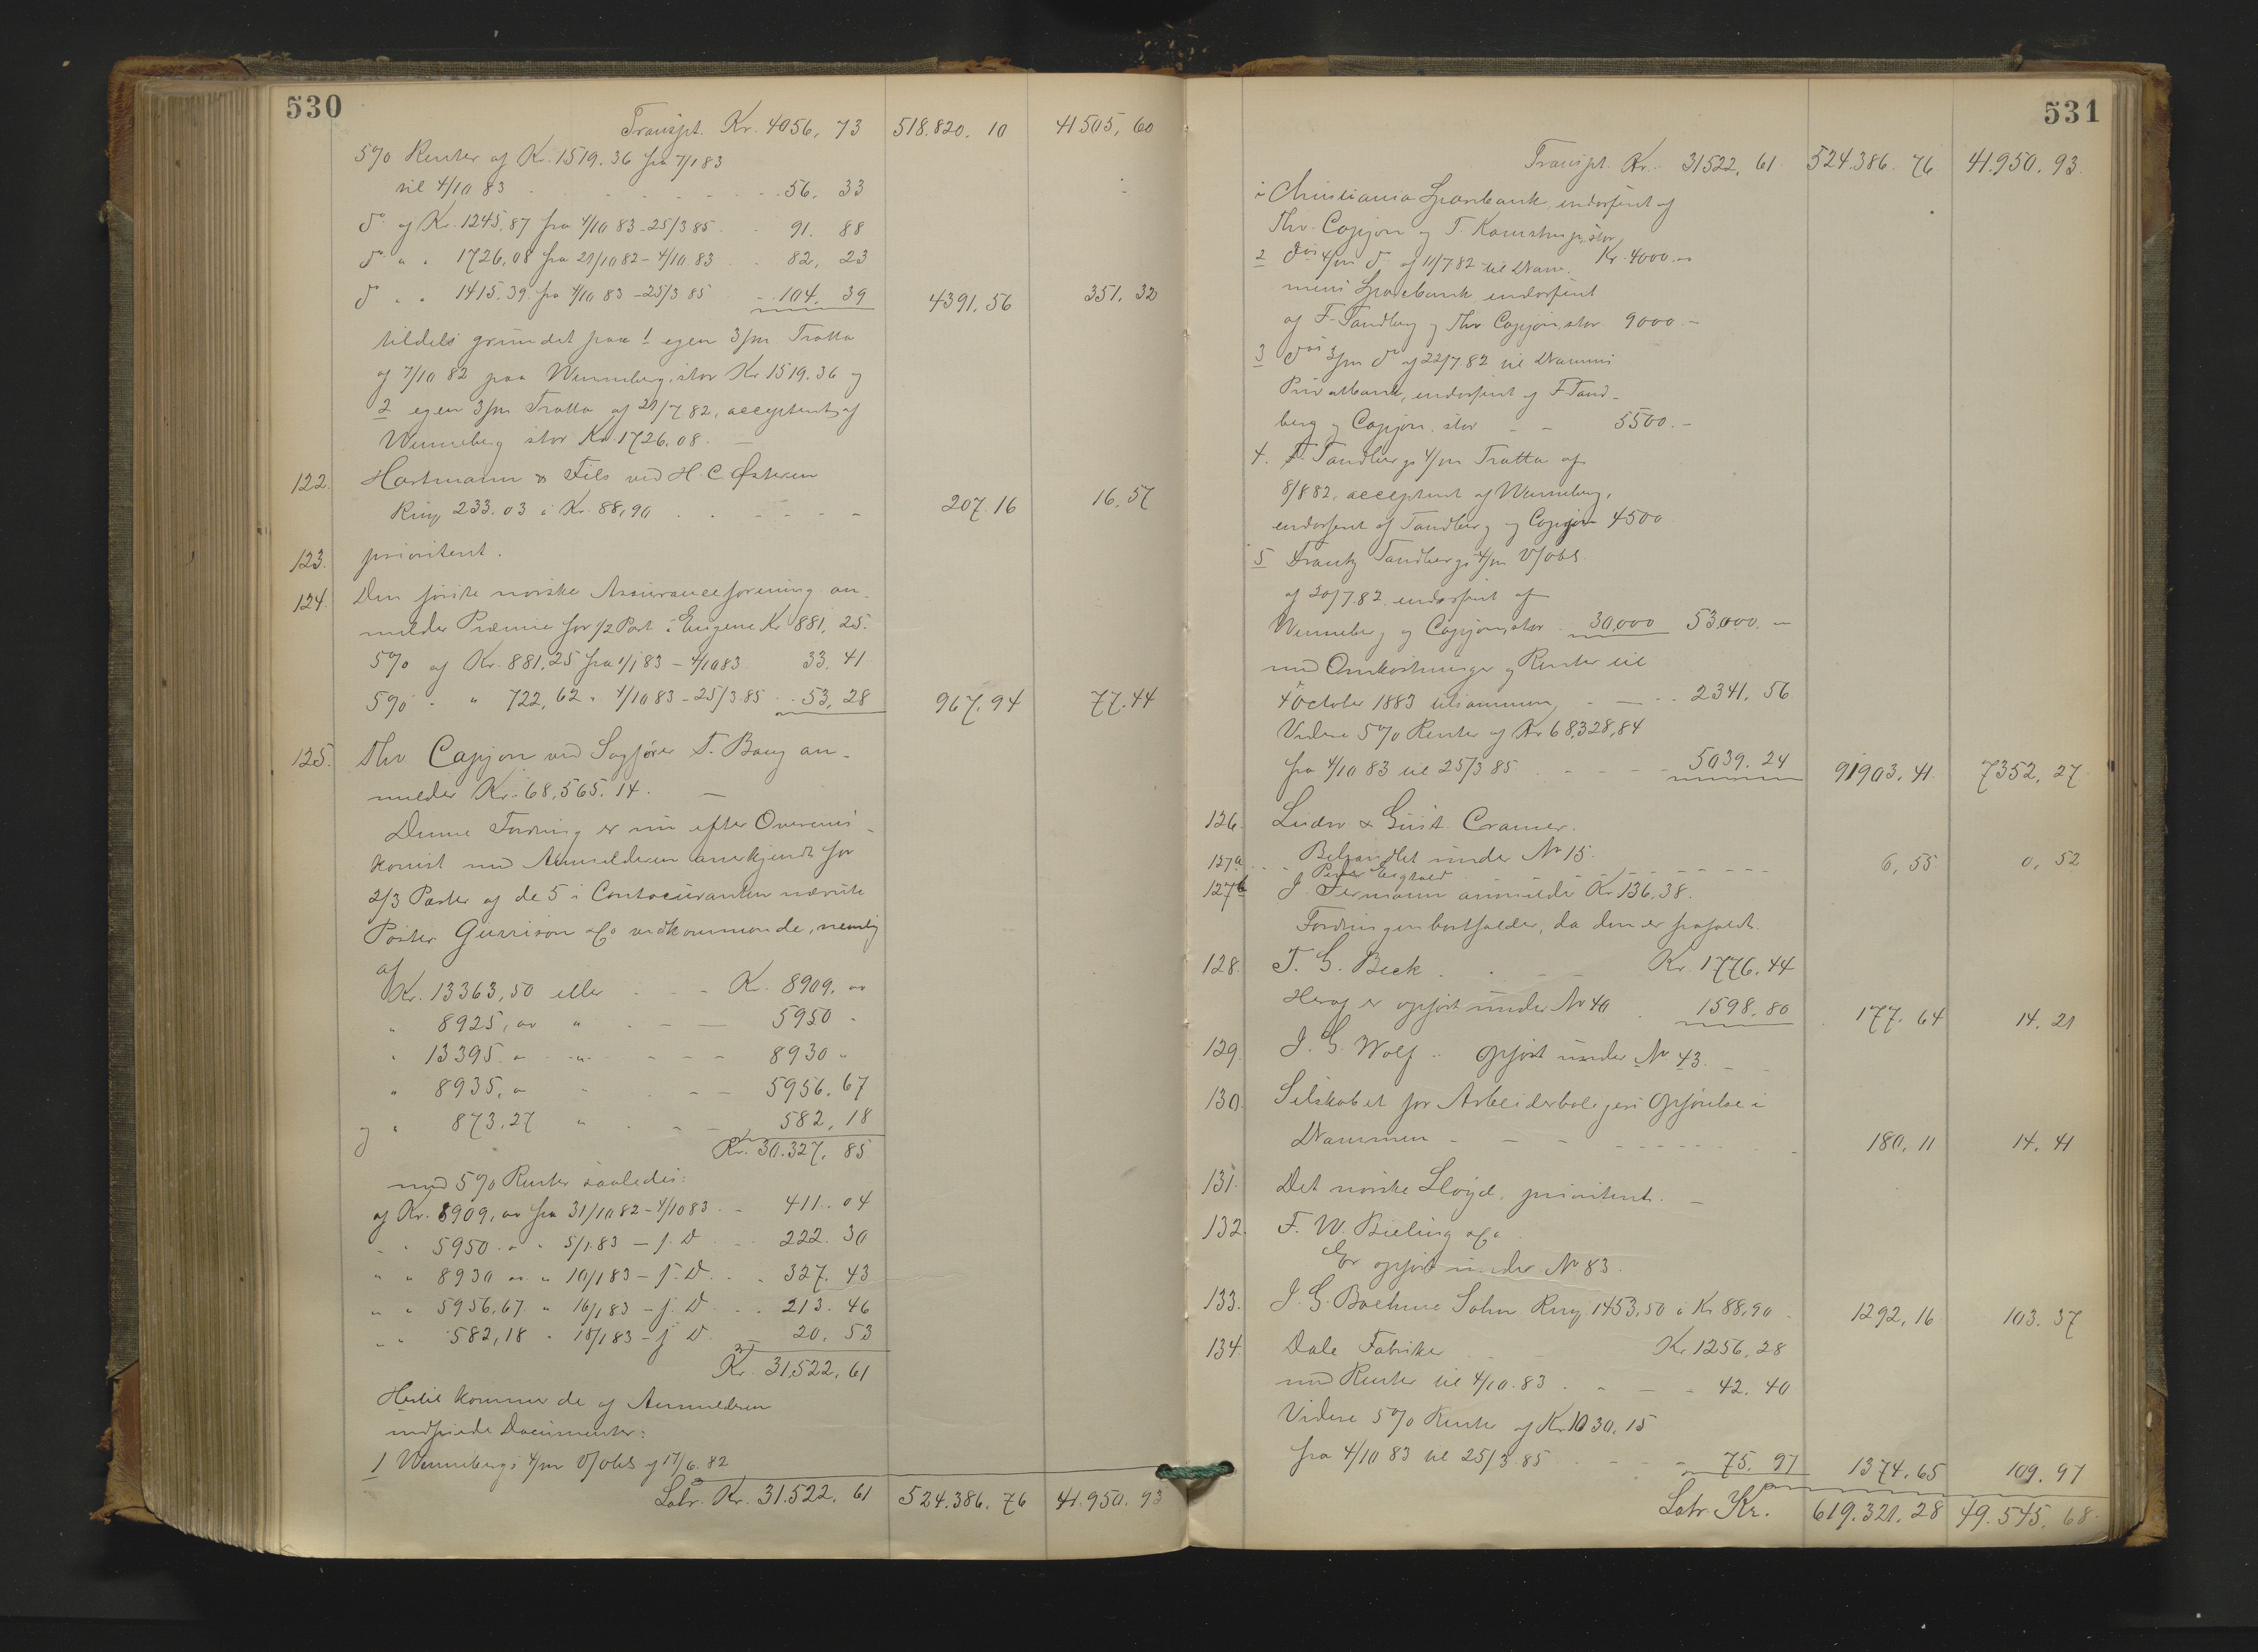 530
Transpt. Kr. 4056, 73 518.820. 10 41505, 60
5% Renter af Kr. 1519.36 fra 7/1 83
til 4/10 83 - - - - - - 56. 33
do af Kr. 1245,87 fra 4/10 83 - 25/3 85 - 91. 88
do " " 1726,08 fra 21/10 82 - 4/10.83 - 82, 23
do " " 1415.39. fra 4/10 83 - 25/3 85 - 104. 39 4391.56 351.32
tildels grundet paa 1 egen 3/m Tratta
af 7/10 82 paa Wenneberg, stor Kr 1519.36 og
2 egen 3/m Tratta af 21/7 82, acceptert af
Wenneberg stor Kr. 1726.08. —
122. Hartmann & Fils ved H. C. Østeren
Rmg 233.03 à Kr. 88,90 - - - - - 207.16 16,57
123. prioritert.
124. Den første norske Assuranceforening an-
melder Præmie for 1/2 Part i Eugene Kr 881, 25.
5% af Kr. 881,25 fra 1/1 83 - 4/10 83 33. 41
5% " " 722,62 " 4/10 83 - 25/3 85 - 53, 28 967.94 77.44
125. Thv. Capjon ved Sagfører T. Bang an-
melder Kr. 68,565. 14. —
Denne Fordring er nu efter Overens-
komst med Anmelderen anerkjendt for
2/3 Parter af de 5 i Contocuranten nævnte
Poster Gurrison & Co vedkommende, nemlig
af
Kr. 13363,50 eller - - - Kr. 8909. "
" 8925, " " - - - 5950 -
" 13395. " " - - - 8930 "
" 8935, " - - - 5956.67
og " 873.27 " - - - 582, 18
Kr. 30.327, 85
med 5% Renter saaledes:
af Kr. 8909, " fra 31/10 82 - 4/10 83 - 411. 04
" " 5950 " " 5/1.83 - s. D - 222. 30
" " 8930 " " 10/1 83 - s. D. - 327. 43
" " 5956,67. " 16/1 83 - s. D - 213. 46
" " 582,18 " 18/1 83 - s D - 20. 53
Kr. 31,522, 61
Hertil kommer de af Anmelderen
indfriede Documenter:
1 Wennebergs 4/m V/obl. af 17/6.82
Latr. Kr. 31.522, 61 524.386.76 41.950.93
531
Transpt. Kr. 31522, 61 524.386. 76 41.950. 93.
i Christiania Sparebank, endosseret af
Thv. Capjon og T. Kamstrup, stor
Kr. 4000.-
2 Dos 4/m do af 11/7 82 til Dram-
mens Sparebank, endosseret
af F. Tandberg og Thv. Capjon, stor 9000.-
3 Dos 3/m do af 22/7.82 til Drammens
Privatbank, endosseret af F Tand-
berg og Capjon, stor - - 5500.-
4. F. Tandbergs 4/m Tratta af
8/8 82, acceptert af Wenneberg,
endosseret af Tandberg og Capjon 4500
5 Frantz Tandbergs 4/m V/obl.
af 20/7.82 endosseret af
Wenneberg og Capjon, stor 30,000 53,000.-
med Omkostninger og Renter til
4 October 1883 tilsammen - - 2341, 56
Videre 5% Renter af Kr 68,328,84
fra 4/10 83 til 25/3 85 - - - 5039. 24 91903. 41. 7352, 27
126. Ludv & Gust. Cramer.
Behandlet under No 15.
127a - - Peder - - - - - - 6, 55 0, 52
127b J. Fermann anmelder Kr 136.38.
Fordringen bortfalder, da den er frafaldt.
128. T. G. Beck - - Kr. 1776.44
Heraf er opført under No 40 1598.80 177. 64 14. 21
129. J. G. Wolf - opført under No 43. -
130. Selskabet for Arbeiderboligers Opførelse i
Drammen - - - - - 180, 11 14. 41
131. Det norske Lloyd, prioritert. -
132. F. W. Bieling & Co
Er opført under No 83.
133. J. G. Boehme Sohn Rmg. 1453,50 à Kr 88,90 - 1292, 16 103. 37
134. Dale Fabriker - - Kr 1256,28
med Renter til 4/10.83 - - - 42. 40
Videre 5% Renter af Kr. 1030,15
fra 4/10 83 til 25/3.85 - - - 75. 97 1374.65 109.97
Latr. Kr. 619.321.28 49.545, 68.